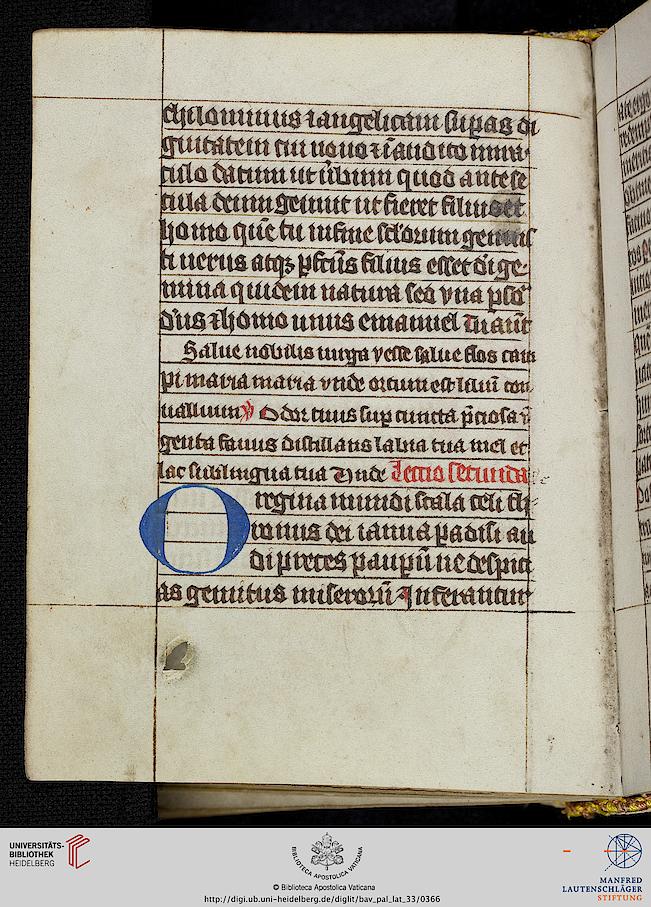 chilominus ⁊ angelicam sup̄as di
gnitatem cui nouo ⁊ īaudito mira
culo datum ut ūbum quod ante se
cula deum genuit ut fieret filius et
homo quē tu in fine sc̄lorum genuis
ti uerus atqꝫ pfc̄ūs filius esset di ge
mina quidem natura sed vna pso
d̄us ⁊ homo unus emanuel Tu aut̄
Salue nobilis uirga yesse salue flos cam
pi maria maria vnde ortum est liliū con
uallium ℣ Odor tuus sup cuncta p̄ciosa v̄
genta fauus distillans labia tua mel et
lac sub lingua tua Vnde Lectio secunda
O regina mundi scala celi th
ronus dei ianua padisi au
di preces paupū ne despici
as gemitus miserorū Inferantur
UNIVERSITÄTS-
BIBLIOTHEK
HEIDELBERG
BIBLIOTECA APOSTOLICA VATICANA
© Biblioteca Apostolica Vaticana
http://digi.ub.uni-heidelberg.de/diglit/bav_pal_lat_33/0366
MANFRED
LAUTENSCHLÄGER
STIFTUNG